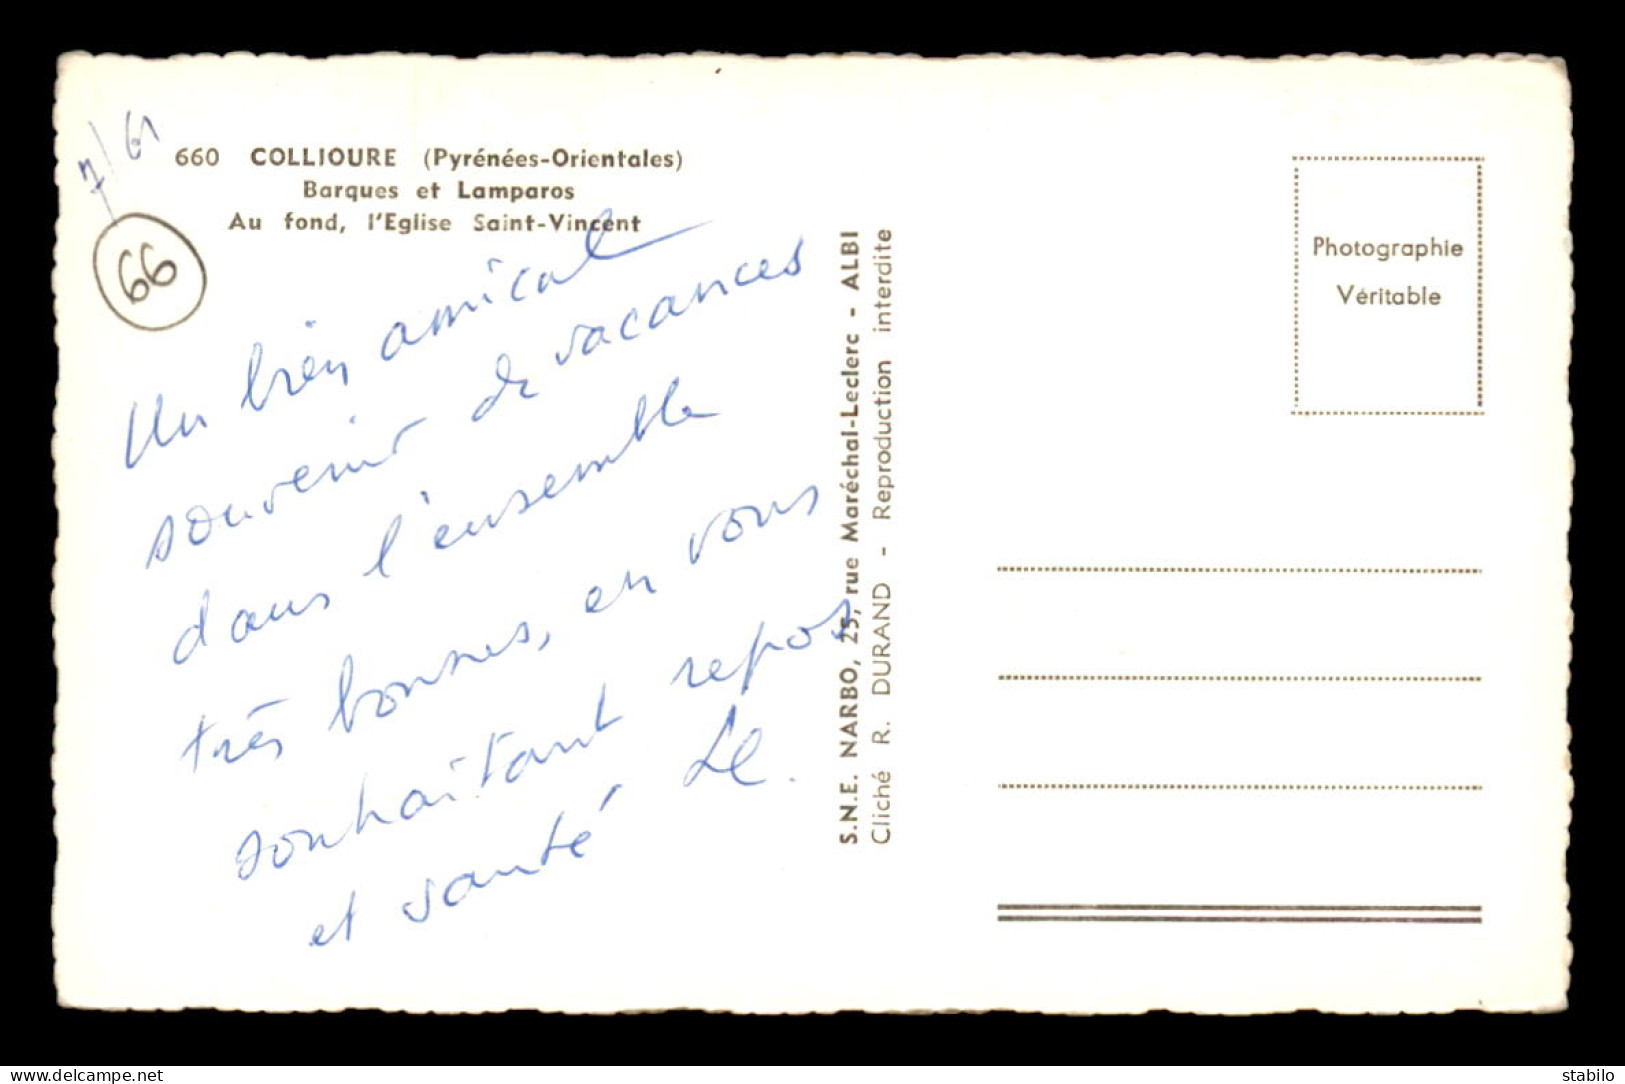 7/61
660 COLLIOURE (Pyrénées-Orientales)
Barques et Lamparos
Au fond, l'Eglise Saint-Vincent
66
Un bien amical
souvenir de vacances
dans l'ensemble
très bonnes, en vous
souhaitant repos
et santé
S.N.E. NARBO, 25, rue Maréchal-Leclerc - ALBI
Cliché R. DURAND - Reproduction interdite
Photographie
Véritable
delcampe.net
stabilo